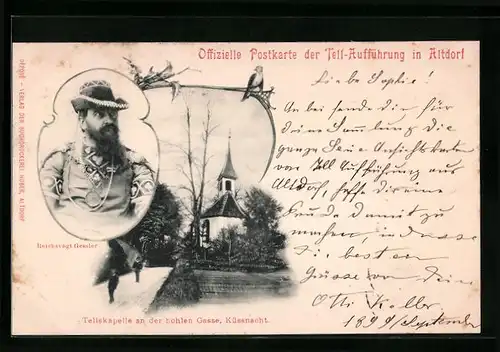 Offizielle Postkarte der Tell-Aufführung in Altdorf
DÉPOSÉ - VERLAG DER BUCHDRUCKEREI HUBER, ALTDORF
Reichsvogt Gessler
Tellskapelle an der hohlen Gasse, Küssnacht.
Liebe Sophie!
An bei sende Dir für
deine Sammlung die
ganze Serie Ansichtskarten
von Tell Aufführung aus
Altdorf, hoffe dir eine
Freude damit zu
machen,
die besten
Grüsse von Dein
Otto Keller
1899/September